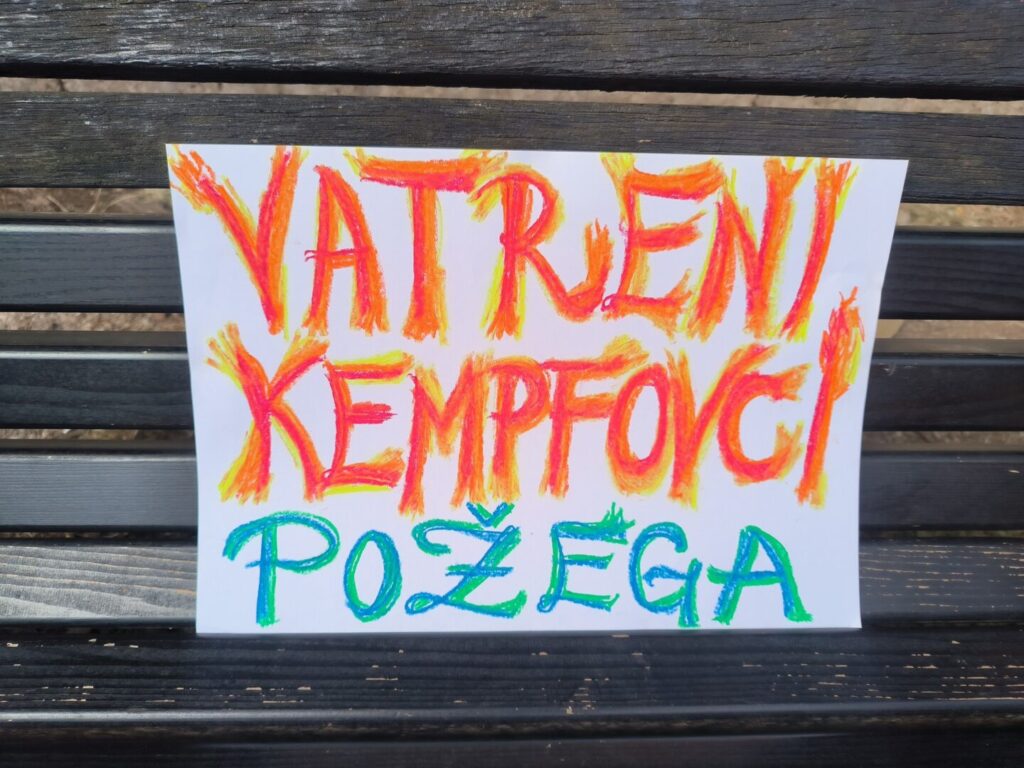 VATRENI
KEMPFOVCI
POŽEGA